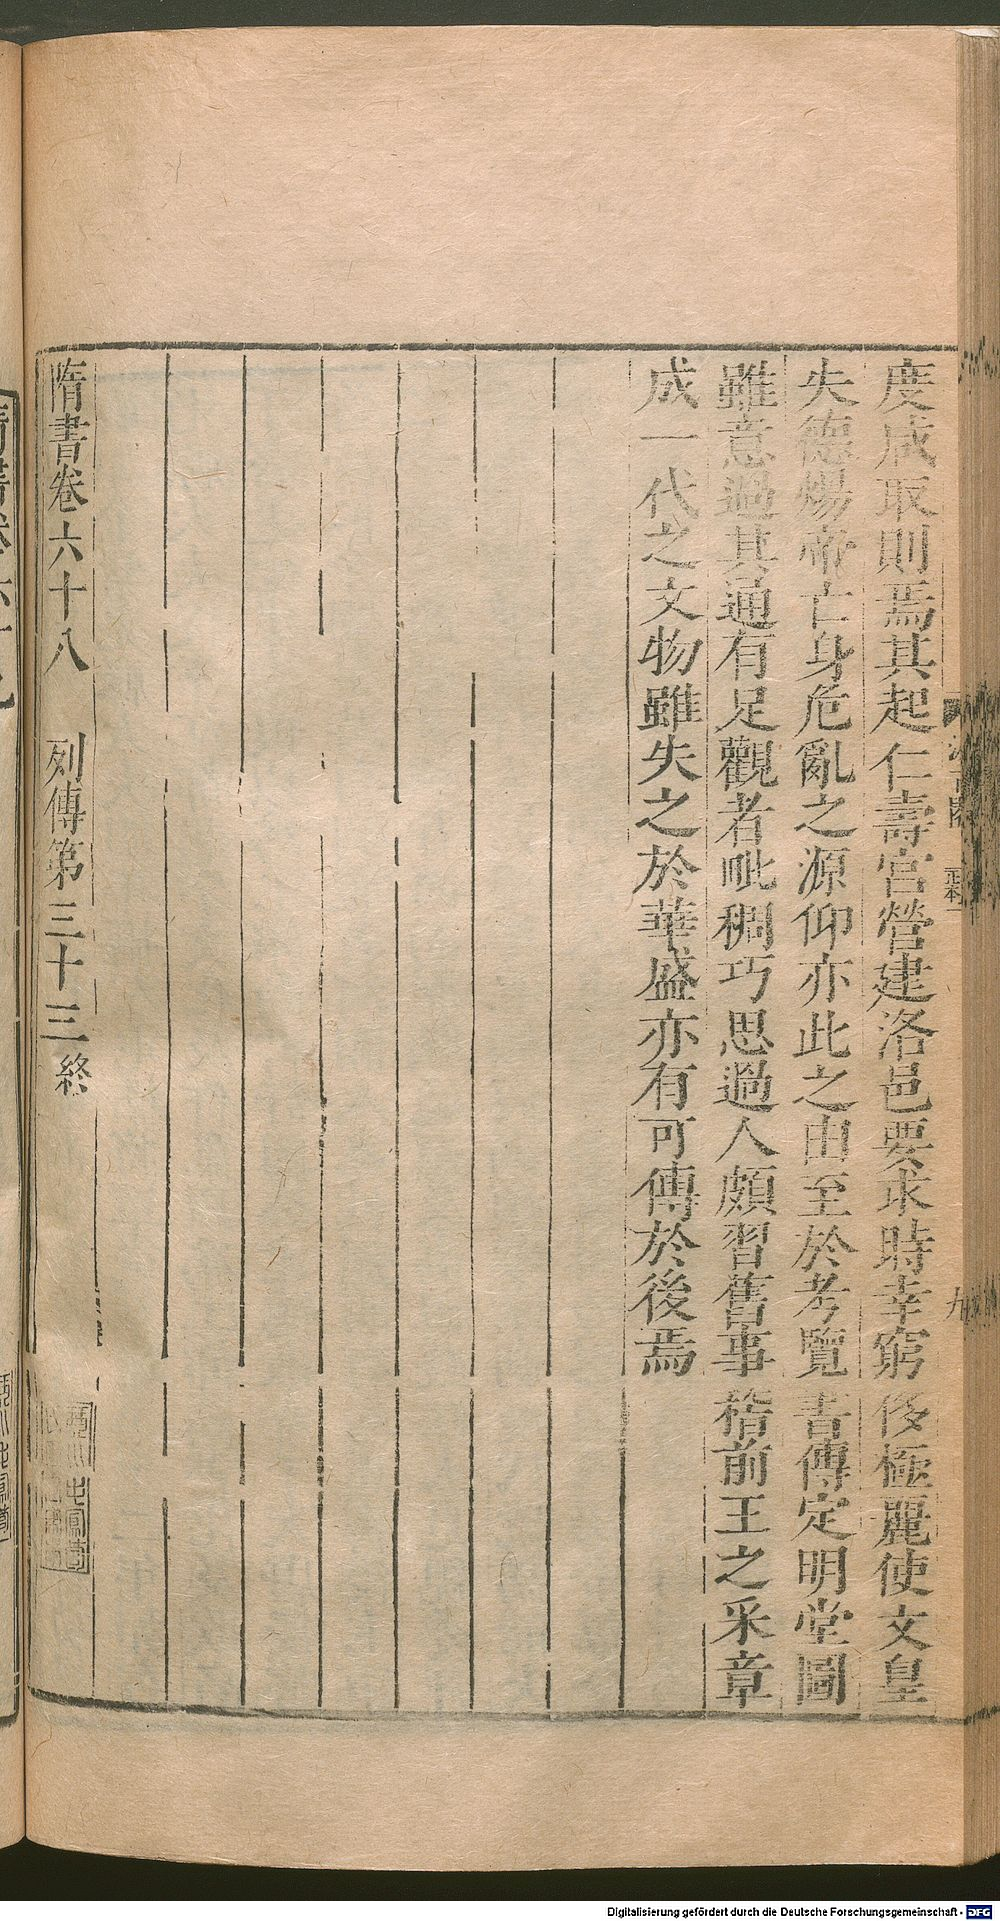 度咸取則焉其起仁壽宮營建洛邑要求時幸窮侈極麗使文皇
失德煬帝亡身危亂之源仰亦此之由至於考覽書傳定明堂圖
雖意過其通有足觀者毗稠巧思過人頗習舊事稽前王之采章
成一代之文物雖失之於華盛亦有可傳於後焉
隋書卷六十八 列傳第三十三終
正本
九
Digitalisierung gefördert durch die Deutsche Forschungsgemeinschaft - DFG